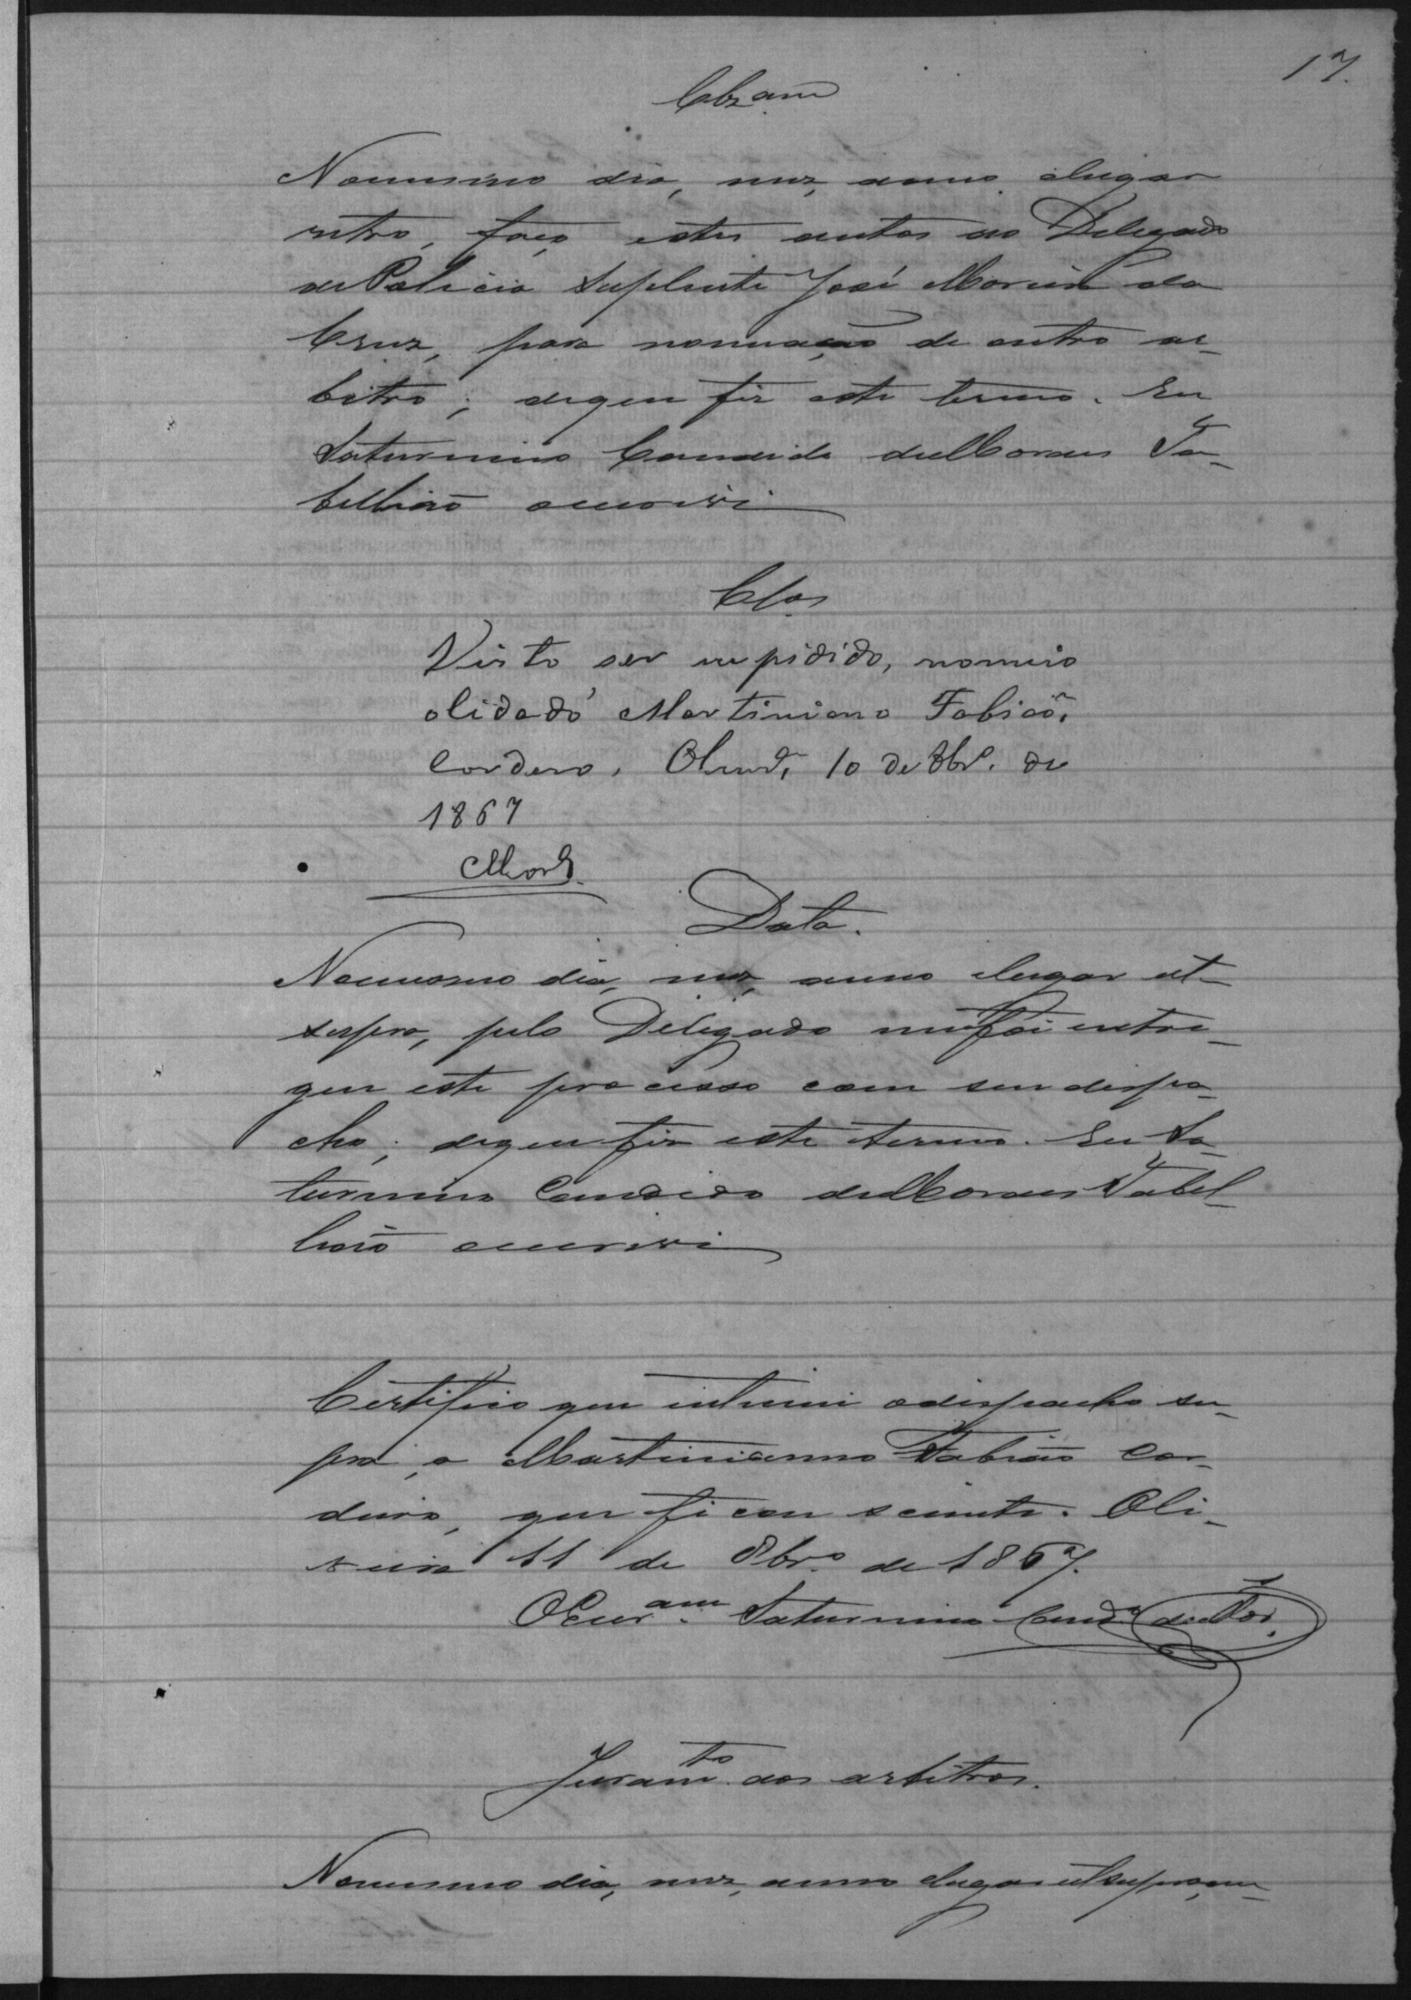 17.
Clzam
No mesmo dia, mez, anno, e lugar
retro, faço estes autos ao Delegado
de Policia Suplente José Moreira da
Cruz, para nomeação de outro ar_
bitro; de que fiz este termo. Eu
Saturnino Candido de Moraes Ta_
bellião escrevi
Clos
Visto ser impidido, nomeio
o lidadó Martiniano Fabião
Cordero. Olivrª, 10 de 8brº. de
1867
Data.
No mesmo dia, mez, anno e lugar ut_
supra, pelo Delegado me foi entre_
gue este processo com seu despa_
cho; de que fiz este termo. Eu Sa_
turnino Candido de Moraes Tabel_
lião escrevi
Certifico que intimei o despacho su_
pra, a Martinianno Fabião Cor_
deiro, que ficou sciente. Oli_
veira 11 de 8brº de 1867.
O Escram. Saturnino Candº de Mor.
Juramto. aos arbitros.
No mesmo dia, mez, anno e lugar ut supra, em_